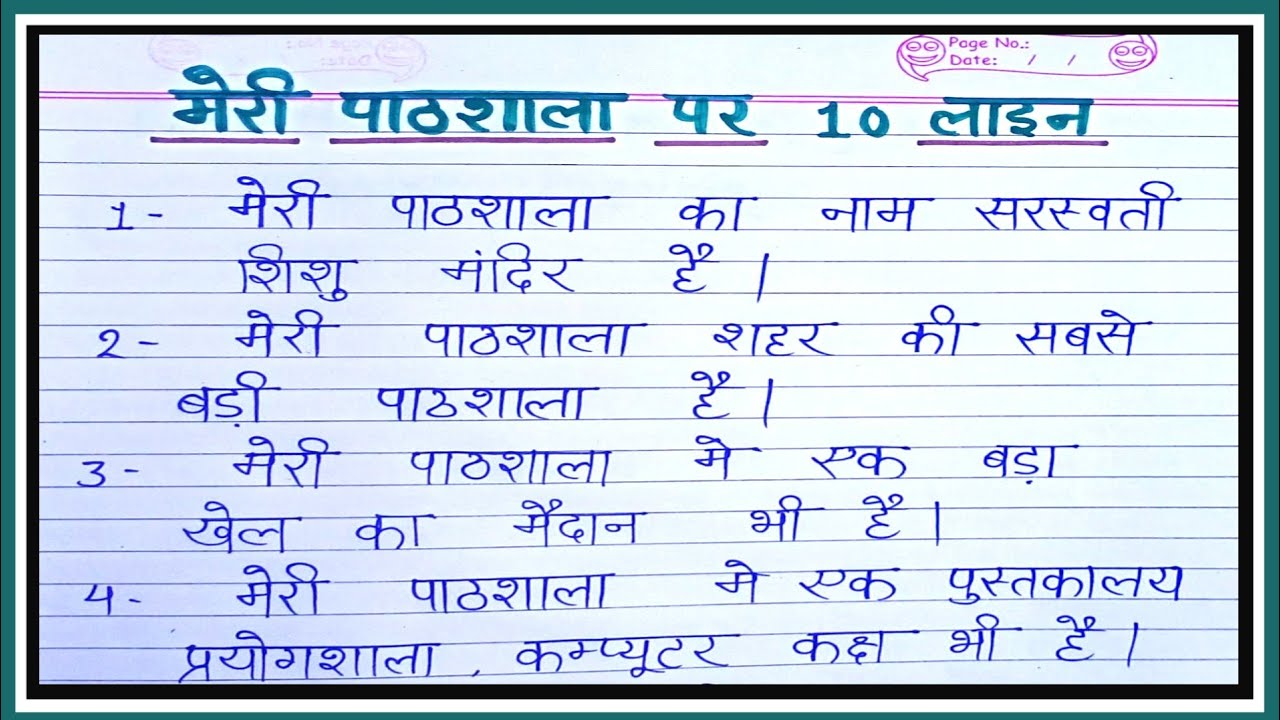 Page No.:
Date: / /
मेरी पाठशाला पर 10 लाइन
1- मेरी पाठशाला का नाम सरस्वती
शिशु मंदिर है।
2- मेरी पाठशाला शहर की सबसे
बड़ी पाठशाला है।
3- मेरी पाठशाला मे एक बड़ा
खेल का मैदान भी है।
4- मेरी पाठशाला मे एक पुस्तकालय
प्रयोगशाला, कम्प्यूटर कक्ष भी है।